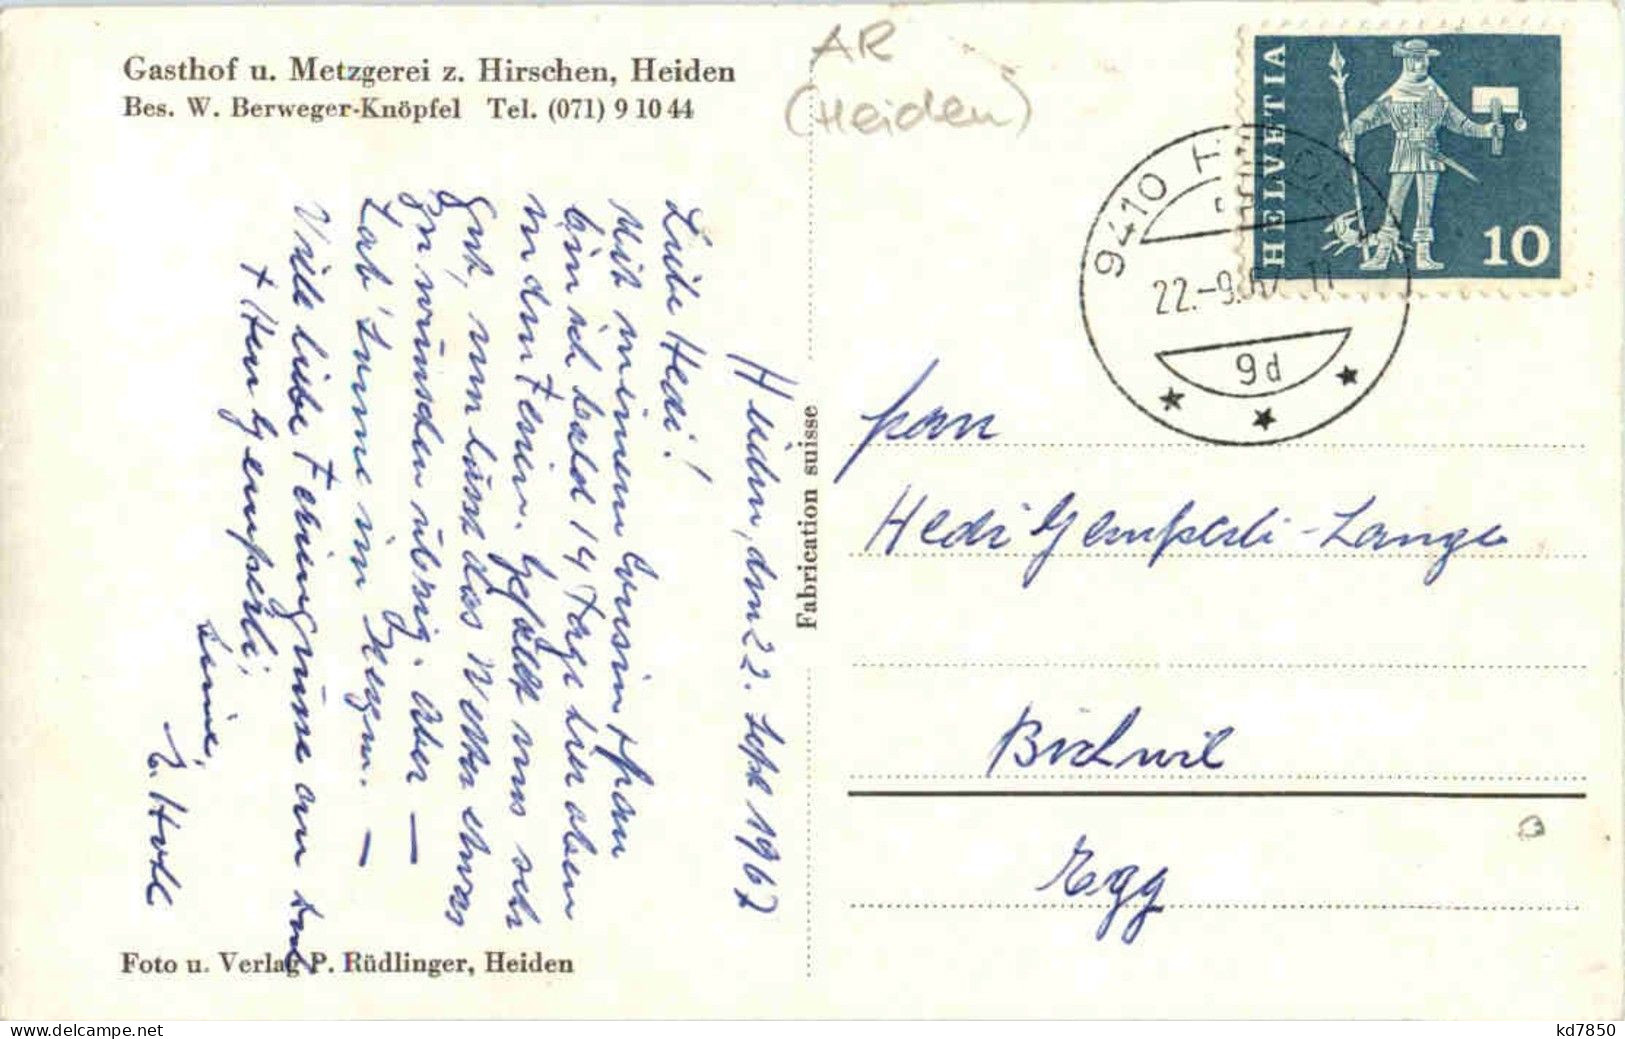 Gasthof u. Metzgerei z. Hirschen, Heiden
Bes. W. Berweger-Knöpfel Tel. (071) 9 10 44
AR
(Heiden)
HELVETIA
10
9410
22.-9.67
9d
Heiden, den 22. Sept 1967
Liebe Hedi!
Mit meiner Cousin Frau
bin ich bald 14 Tage hier oben
in den Ferien. Gefällt uns sehr
gut, nun lässt das Wetter etwas
zu wünschen übrig. Aber —
Hab' Sonne im Herzen. —
Viele liebe Feriengrüsse an Dich
+ Herr Gemperli,
Deine,
Fabrication suisse
Frau
Hedi Gemperli-Lange
Bichwil
Egg
Foto u. Verlag P. Rüdlinger, Heiden
kd7850